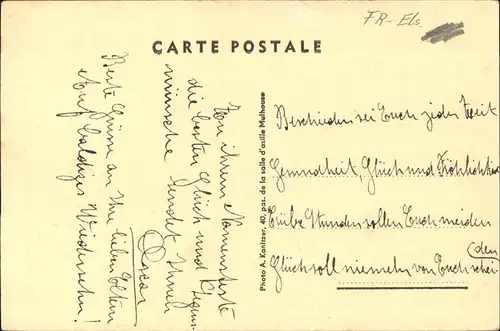 FR-Els.
CARTE POSTALE
Zu ihrem Namensfeste
die besten Glück und Segens
wünsche sendet Ihnen
Oscar
Beste Grüsse an Ihre lieben Eltern
Auf baldiges Wiedersehn!
Photo A. Kanitzer, 40, pas. de la salle d'asile Mulhouse
Beschieden sei Euch jeder Zeit
Gesundheit, Glück und Fröhlichkeit
Trübe Stunden sollen Euch meiden
Glück soll niemehr von Euch schei
(den